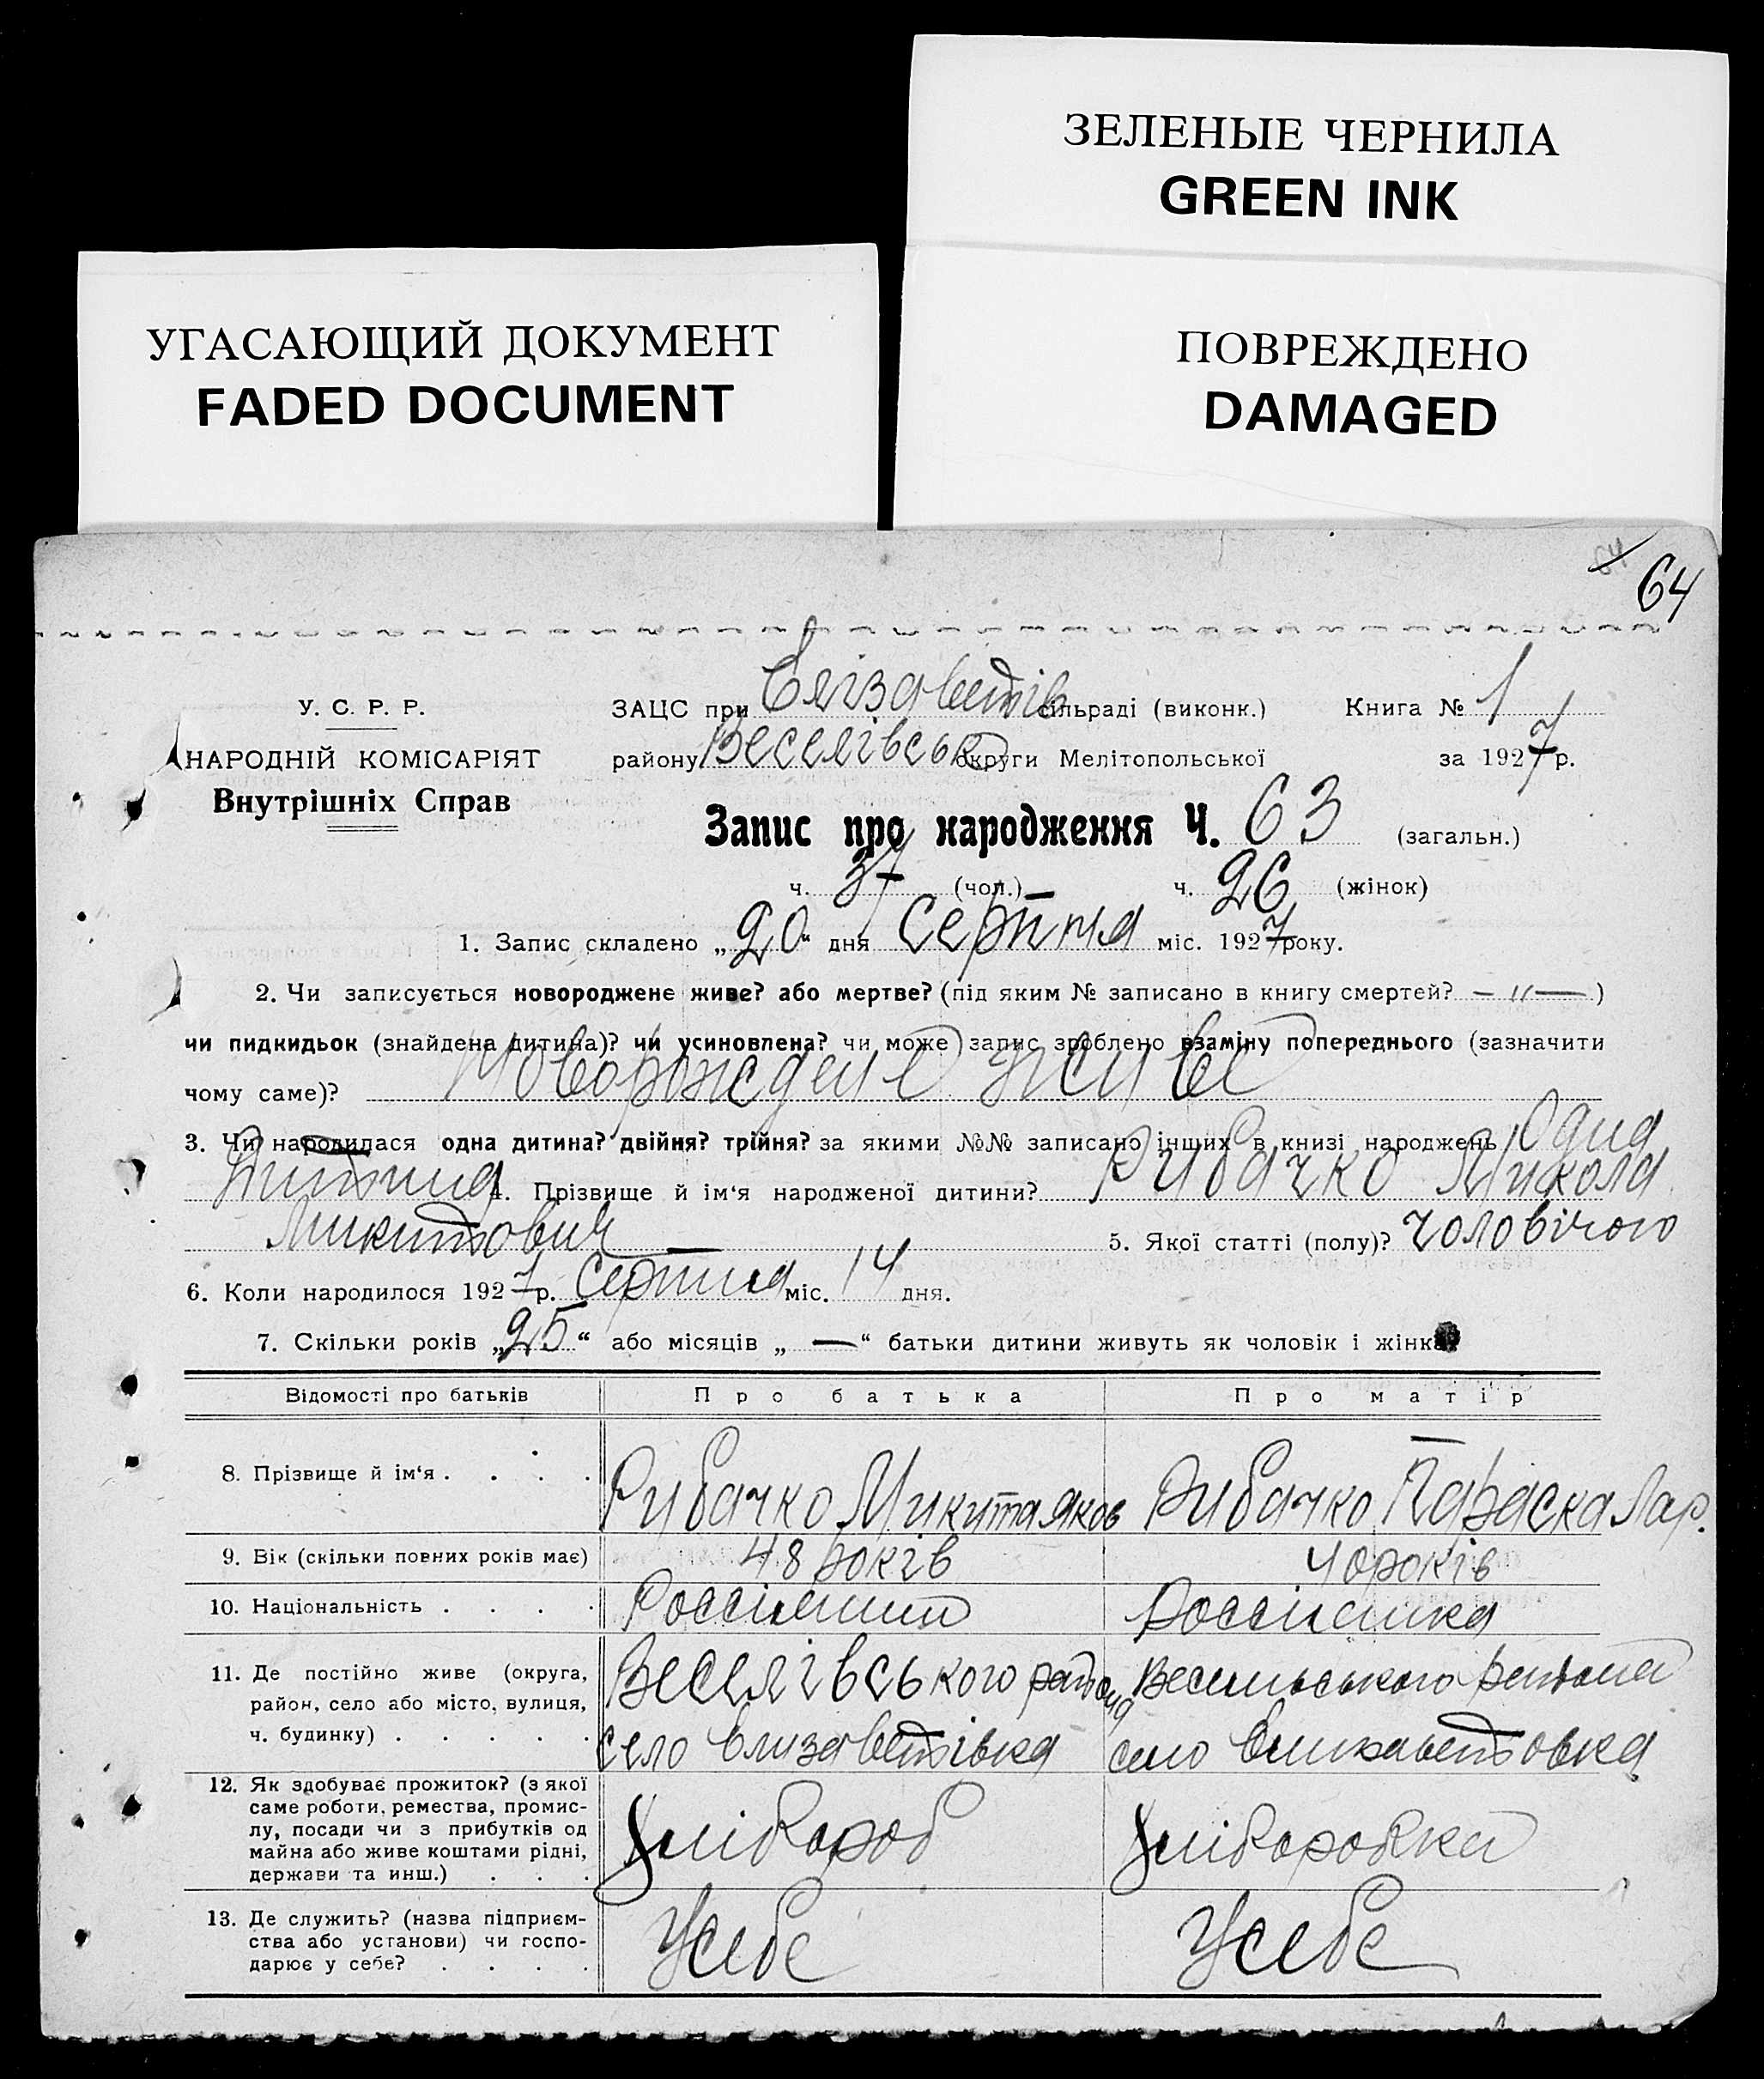 ЗЕЛЕНЫЕ ЧЕРНИЛА
GREEN INK
УГАСАЮЩИЙ ДОКУМЕНТ
FADED DOCUMENT
ПОВРЕЖДЕНО
DAMAGED
64
64
У. С. Р. Р.
НАРОДНІЙ КОМІСАРІЯТ
Внутрішніх Справ
ЗАЦС при Єлізаветів сільраді (виконк.) Книга № 1
району Веселівськ округи Мелітопольської за 1927 р.
Запис про народження Ч. 63 (загальн.)
ч. 37 (чол.) ч. 26 (жінок)
1. Запис складено „20“ дня серпня міс. 1927 року.
2. Чи записується новороджене живе? або мертве? (під яким № записано в книгу смертей? — „ — )
чи пидкидьок (знайдена дитина)? чи усиновлена? чи може запис зроблено взаміну попереднього (зазначити
чому саме)? Новорождене живе
3. Чи народилася одна дитина? двійня? трійня? за якими №№ записано інших в книзі народжень Одна
дитина 4. Прізвище й ім'я народженої дитини? Рибачко Микола
Микитович 5. Якої статті (полу)? чоловічого
6. Коли народилося 1927 р. серпня міс. 14 дня.
7. Скільки років „25“ або місяців „—“ батьки дитини живуть як чоловік і жінка
Відомості про батьків Про батька Про матір
8. Прізвище й ім'я . . . . Рибачко Микита Яков Рибачко Параска Лар.
9. Вік (скільки повних років має) 48 років 40 років
10. Національність . . . . Россіянин Россіянка
11. Де постійно живе (округа,
район, село або місто, вулиця,
ч. будинку) . . . . .
Веселівського района
село Єлизаветівка
Весельського района
село Елизаветовка
12. Як здобуває прожиток? (з якої
саме роботи, ремества, промис-
лу, посади чи з прибутків од
майна або живе коштами рідні,
держави та инш.) . . .
Хлібороб Хліборобка
13. Де служить? (назва підприєм-
ства або установи) чи госпо-
дарює у себе? . . . .
У себе У себе